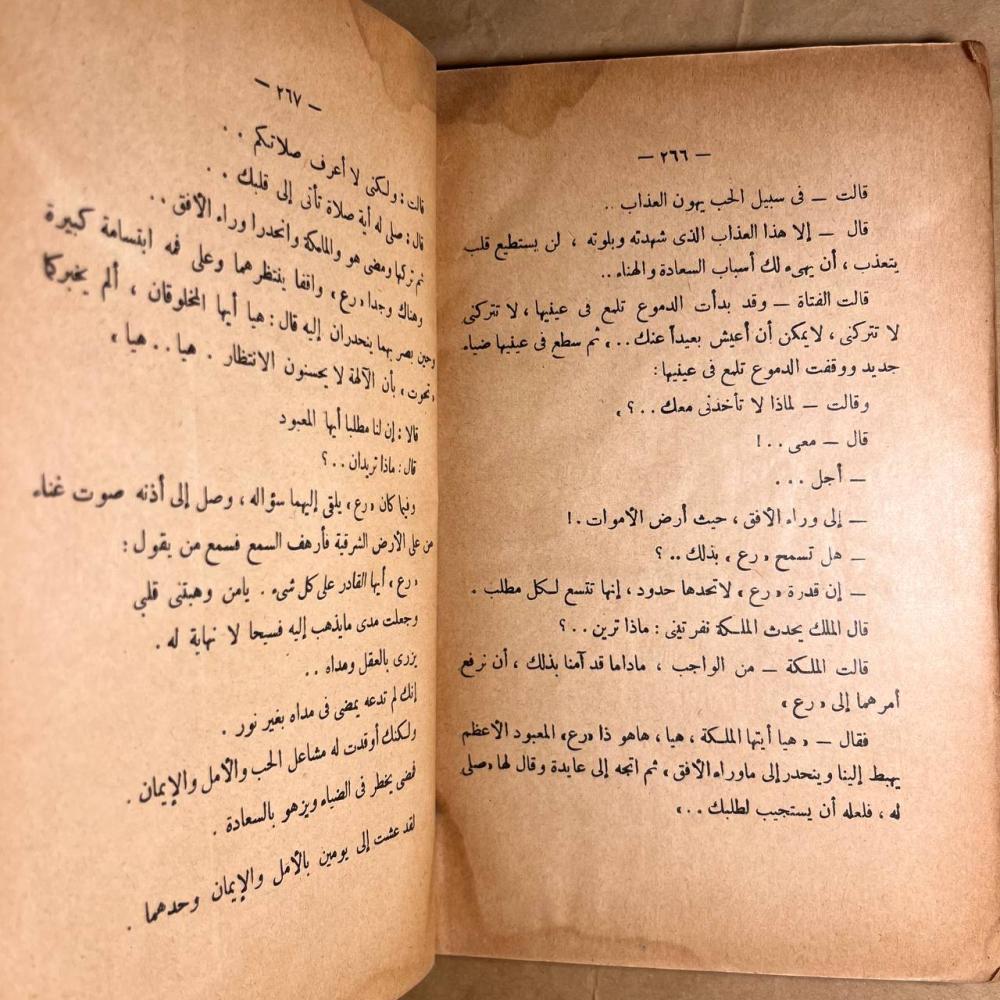 — ٢٦٦ —
قالت — فى سبيل الحب يهون العذاب ..
قال — إلا هذا العذاب الذى شهدته وبلوته ، لن يستطيع قلب
يتعذب ، أن يهىء لك أسباب السعادة والهناء ..
قالت الفتاة — وقد بدأت الدموع تلمع فى عينيها ، لا تتركنى
لا تتركنى ، لايمكن أن أعيش بعيداً عنك .. ، ثم سطع فى عينيها ضياء
جديد ووقفت الدموع تلمع فى عينيها :
وقالت — لماذا لا تأخذنى معك .. ؟ ،
قال — معى .. !
— أجل ...
— إلى وراء الأفق ، حيث أرض الأموات . !
— هل تسمح « رع ، بذلك .. ؟
— إن قدرة « رع ، لاتحدها حدود ، إنها تتسع لكل مطلب .
قال الملك يحدث الملكة نفرتيفى : ماذا ترين .. ؟
قالت الملكة — من الواجب ، ماداما قد آمنا بذلك ، أن نرفع
أمرهما إلى « رع ،
فقال — « هيا أيتها الملكة ، هيا ، هاهو ذا «رع» المعبود الأعظم
يهبط إلينا وينحدر إلى ماوراء الأفق ، ثم اتجه إلى عايدة وقال لها «صلى
له ، فلعله أن يستجيب لطلبك .. ،
— ٢٦٧ —
قالت : ولكنى لا أعرف صلاتكم ..
قال : صلى له أية صلاة تأتى إلى قلبك ..
ثم تركها ومضى هو والملكة وانحدرا وراء الأفق ..
وهناك وجدا «رع» واقفا ينتظرهما وعلى فمه ابتسامة كبيرة
وحين بصر بهما ينحدران إليه قال : هيا أيها المخلوقان ، ألم يخبركما
«تحوت» بأن الآلهة لا يحسنون الانتظار . هيا .. هيا ،
قالا : إن لنا مطلبا أيها المعبود
قال : ماذا تريدان .. ؟
وفيما كان «رع» يلقى إليهما سؤاله ، وصل إلى أذنه صوت غناء
من على الأرض الشرقية فأرهف السمع فسمع من يقول :
« رع ، أيها القادر على كل شىء . يامن وهبتنى قلبى
وجعلت مدى مايذهب إليه فسيحا لا نهاية له .
يزرى بالعقل ومداه ..
إنك لم تدعه يمضى فى مداه بغير نور .
ولكنك أوقدت له مشاعل الحب والأمل والإيمان .
فمضى يخطر فى الضياء ويزهو بالسعادة .
لقد عشت إلى يومين بالأمل والإيمان وحدهما .